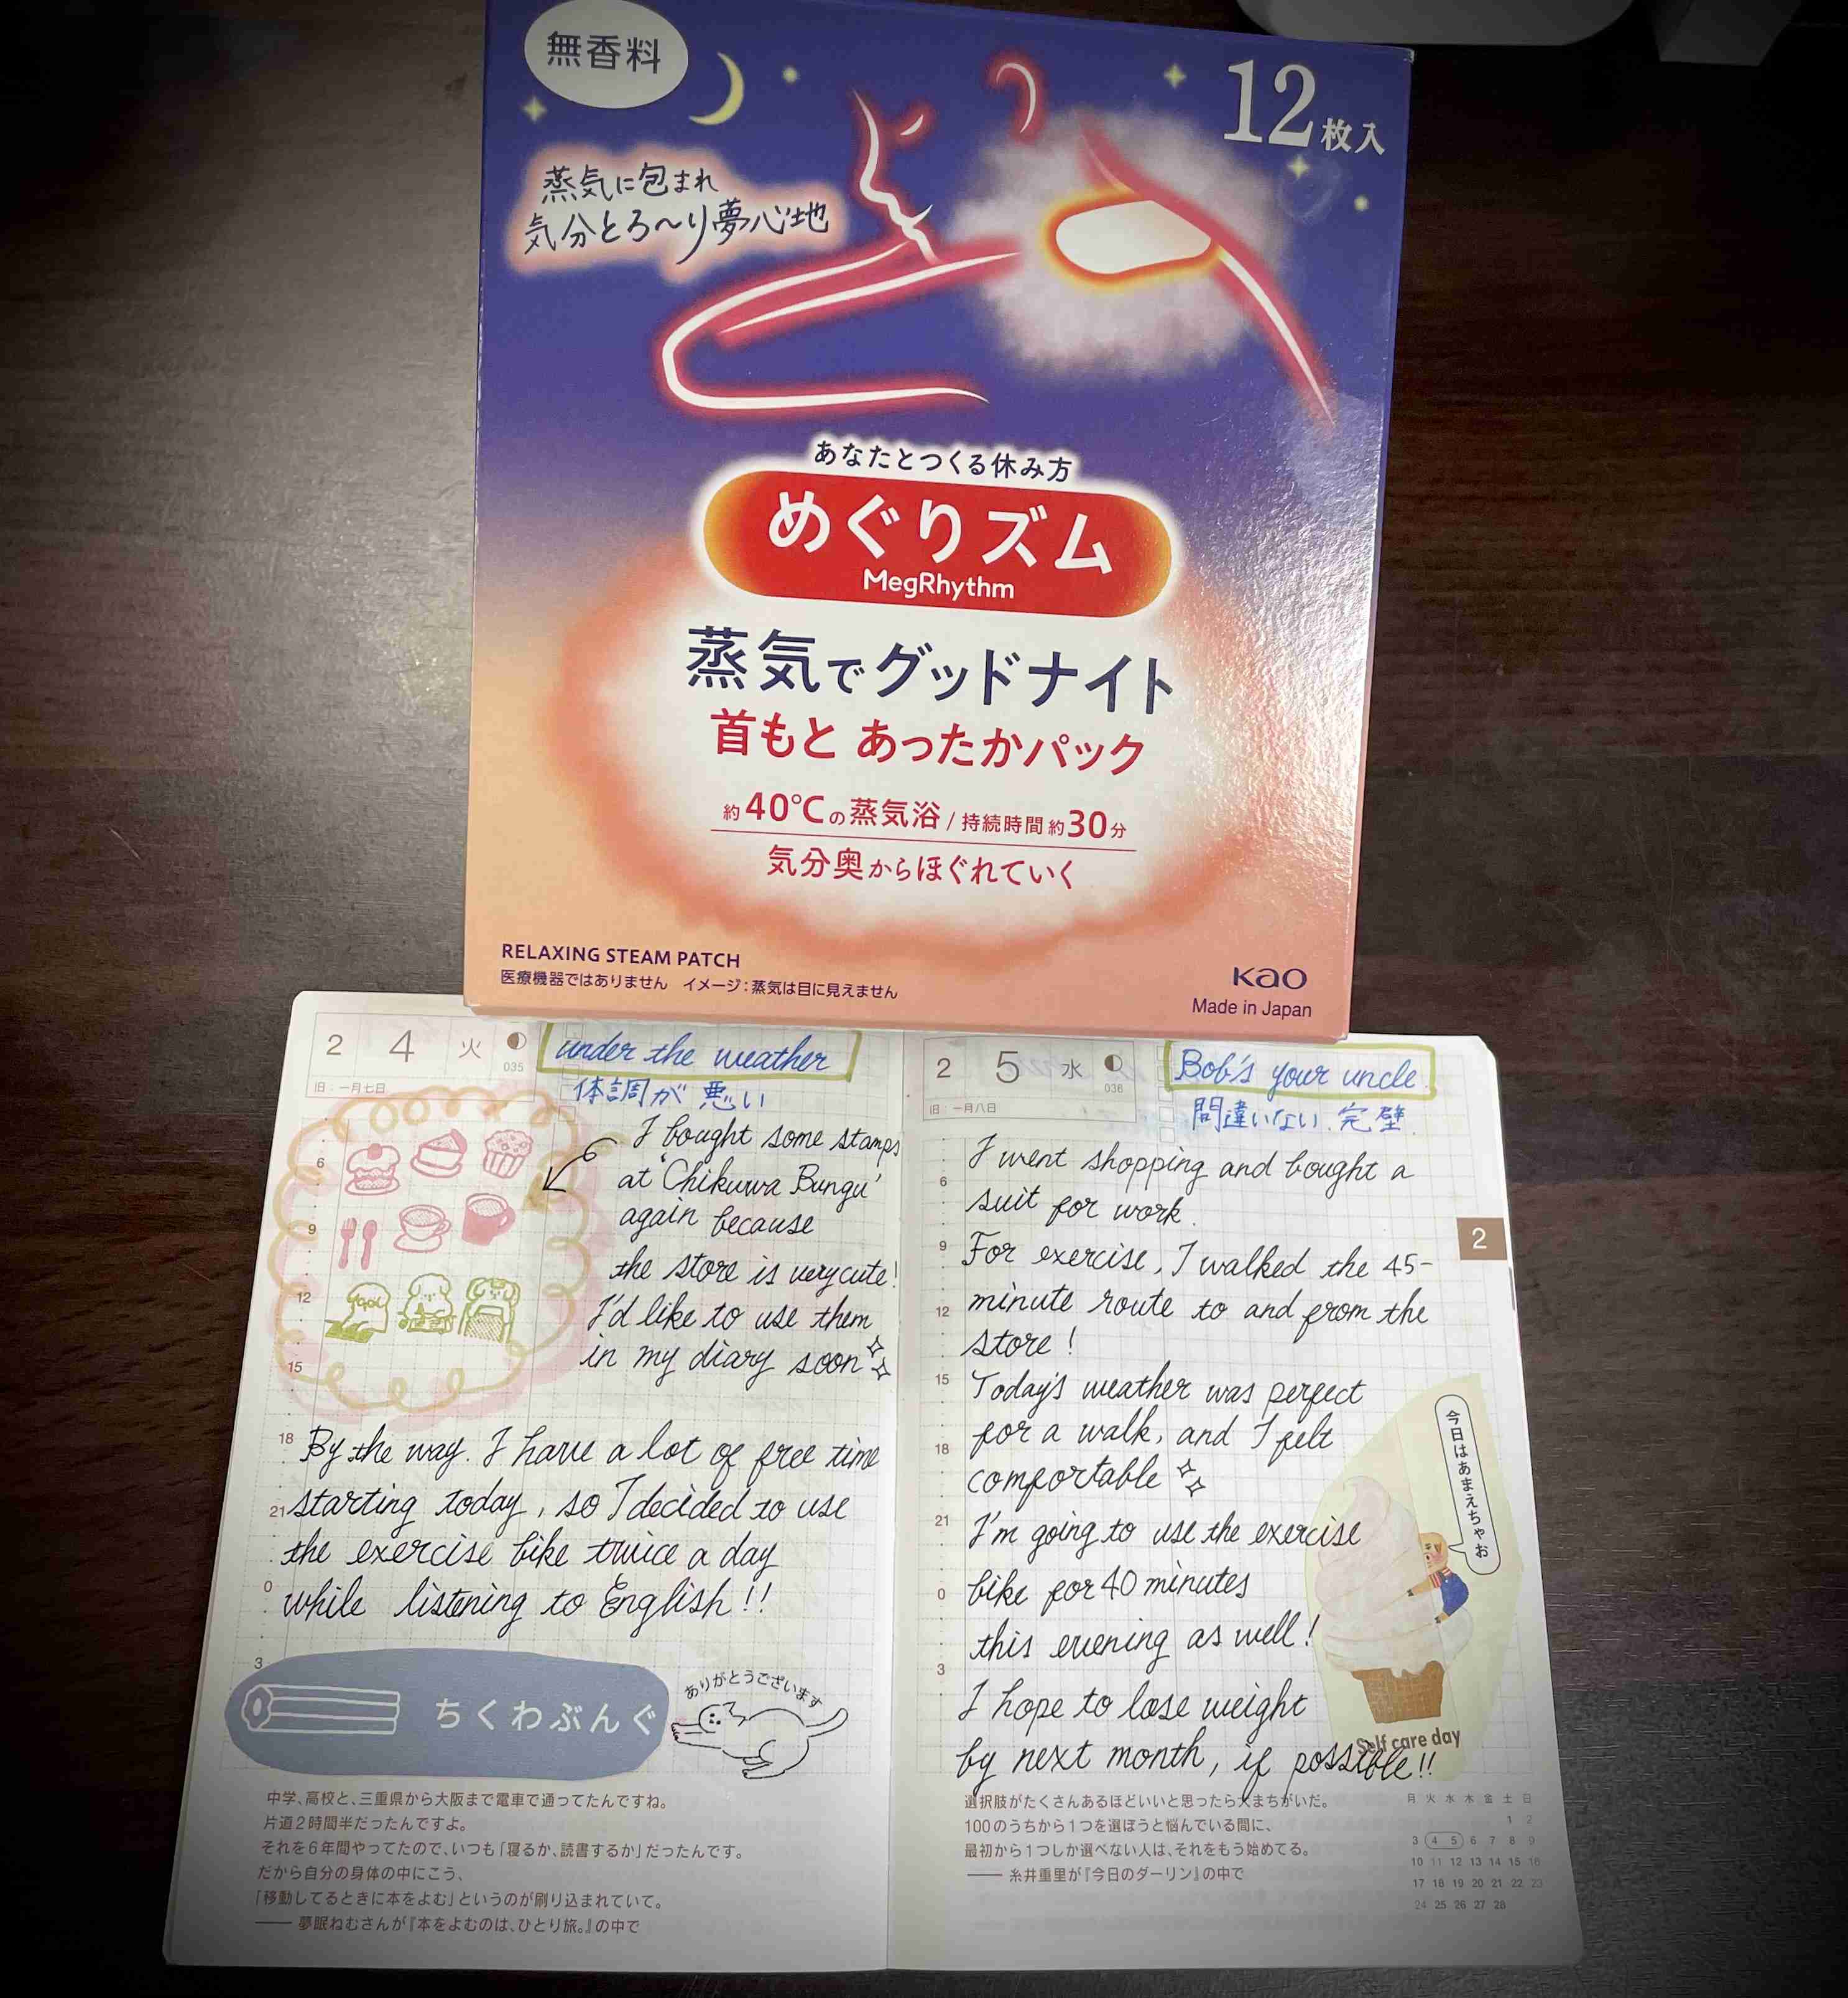 無香料
12枚入
蒸気に包まれ
気分とろ〜り夢心地
あなたとつくる休み方
めぐりズム
MegRhythm
蒸気でグッドナイト
首もと あったかパック
約40℃の蒸気浴/持続時間約30分
気分奥からほぐれていく
RELAXING STEAM PATCH
医療機器ではありません イメージ:蒸気は目に見えません
Kao
Made in Japan
2 4 火
035
旧 一月七日
under the weather
体調が悪い
I bought some stamps
at 'Chikuwa Bungu'
again because
the store is very cute!
I'd like to use them
in my diary soon
6
9
12
15
18
21
0
3
By the way. I have a lot of free time
starting today, so I decided to use
the exercise bike twice a day
while listening to English!!
ちくわぶんぐ
ありがとうございます
中学、高校と、三重県から大阪まで電車で通ってたんですね。
片道2時間半だったんですよ。
それを6年間やってたので、いつも「寝るか、読書するか」だったんです。
だから自分の身体の中にこう、
「移動してるときに本をよむ」というのが刷り込まれていて。
—— 夢眠ねむさんが『本をよむのは、ひとり旅。』の中で
2 5 水
036
旧 一月八日
Bob's your uncle.
間違いない、完璧.
2
6
9
12
15
18
21
0
3
I went shopping and bought a
suit for work.
For exercise, I walked the 45-
minute route to and from the
store!
Today's weather was perfect
for a walk, and I felt
comfortable
I'm going to use the exercise
bike for 40 minutes
this evening as well!
I hope to lose weight
by next month, if possible!!
今日はあまえちゃお
Self care day
選択肢がたくさんあるほどいいと思ったら大まちがいだ。
100のうちから1つを選ぼうと悩んでいる間に、
最初から1つしか選べない人は、それをもう始めてる。
—— 糸井重里が『今日のダーリン』の中で
月 火 水 木 金 土 日
1 2
3 4 5 6 7 8 9
10 11 12 13 14 15 16
17 18 19 20 21 22 23
24 25 26 27 28